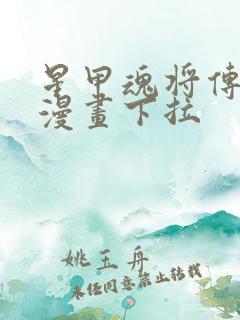 星甲魂将傳
漫畫下拉
姚玉舟
未经同意禁止转载